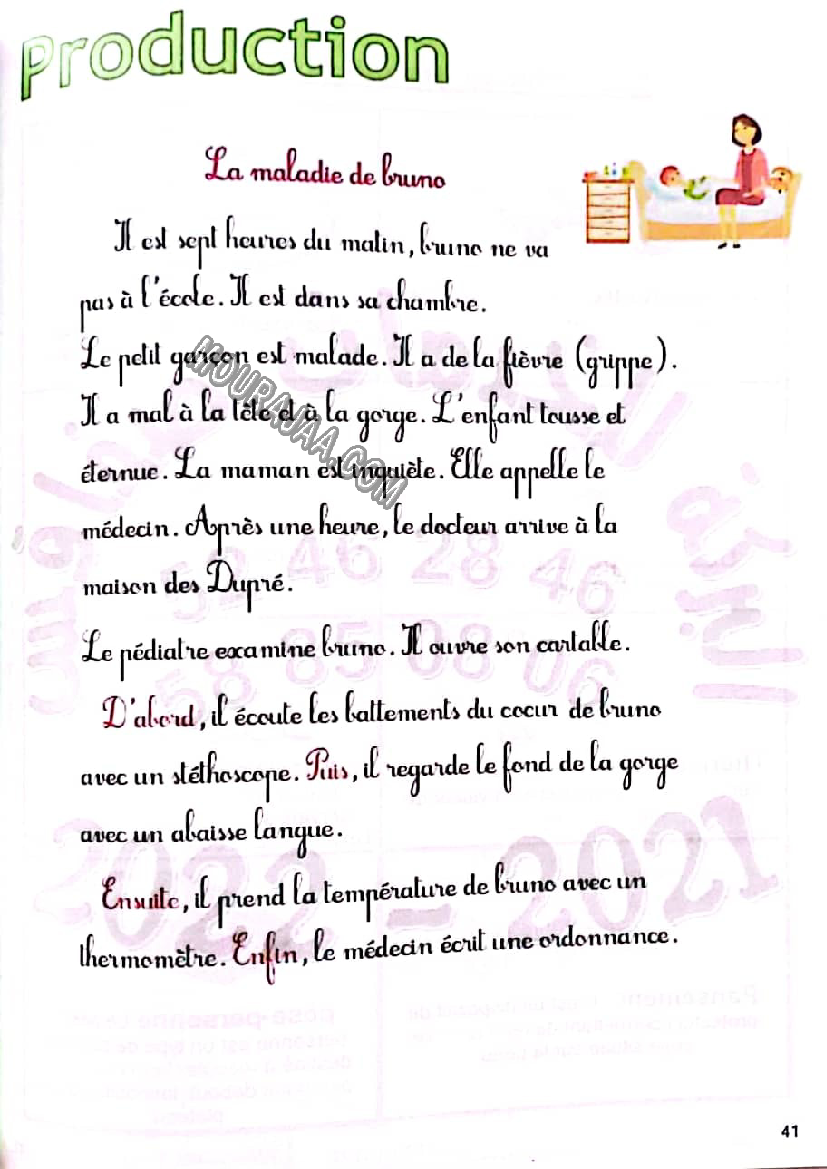 Production
La maladie de bruno
Il est sept heures du matin, bruno ne va
pas à l'école. Il est dans sa chambre.
Le petit garçon est malade. Il a de la fièvre (grippe).
Il a mal à la tête et à la gorge. L'enfant tousse et
éternue. La maman est inquiète. Elle appelle le
médecin. Après une heure, le docteur arrive à la
maison des Dupré.
Le pédiatre examine bruno. Il ouvre son cartable.
D'abord, il écoute les battements du coeur de bruno
avec un stéthoscope. Puis, il regarde le fond de la gorge
avec un abaisse langue.
Ensuite, il prend la température de bruno avec un
thermomètre. Enfin, le médecin écrit une ordonnance.
MOURAJAA.COM
52 46 28 46
58 85 08 06
2022 - 2021
41